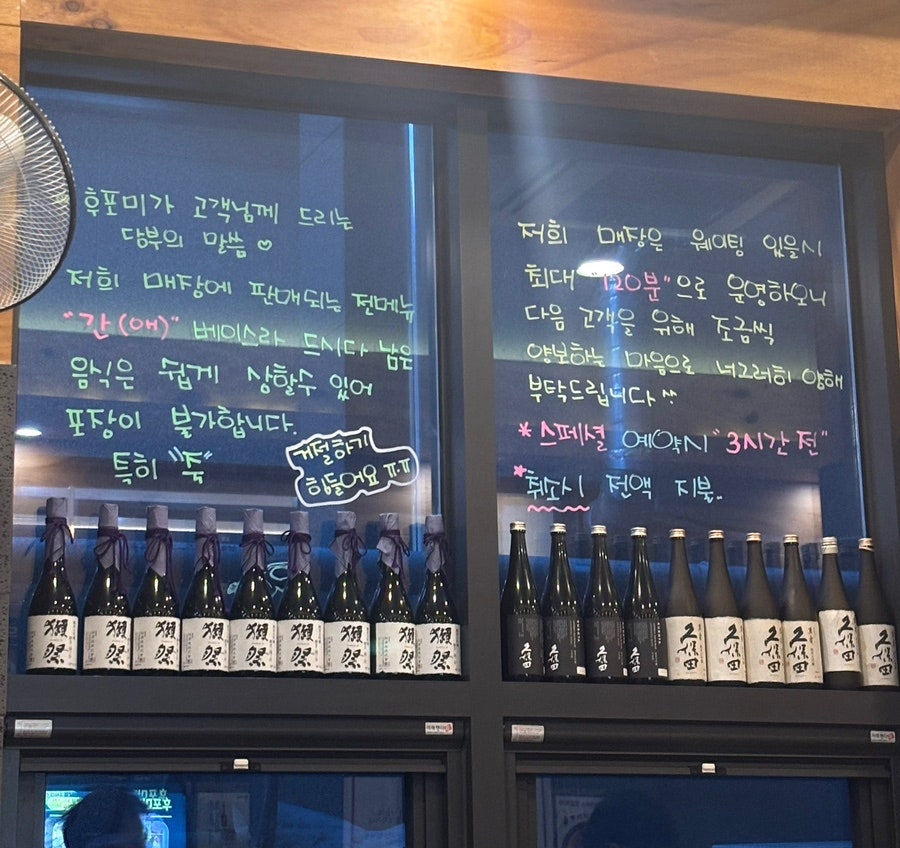 후포미가 고객님께 드리는
당부의 말씀 ♡
저희 매장에 판매되는 전메뉴
"간(애)" 베이스라 드시다 남은
음식은 쉽게 상할수 있어
포장이 불가합니다.
특히 "죽"
거절하기
힘들어요 ㅠ.ㅠ
저희 매장은 웨이팅 있을시
최대 "120분"으로 운영하오니
다음 고객을 위해 조금씩
양보하는 마음으로 너그러히 양해
부탁드립니다 ^^
*스페셜 예약시 "3시간 전"
*취소시 전액 지불.
獺祭 獺祭 獺祭 獺祭 獺祭 獺祭 獺祭 獺祭 獺祭
久保田 久保田 久保田 久保田 久保田 久保田 久保田 久保田 久保田 久保田